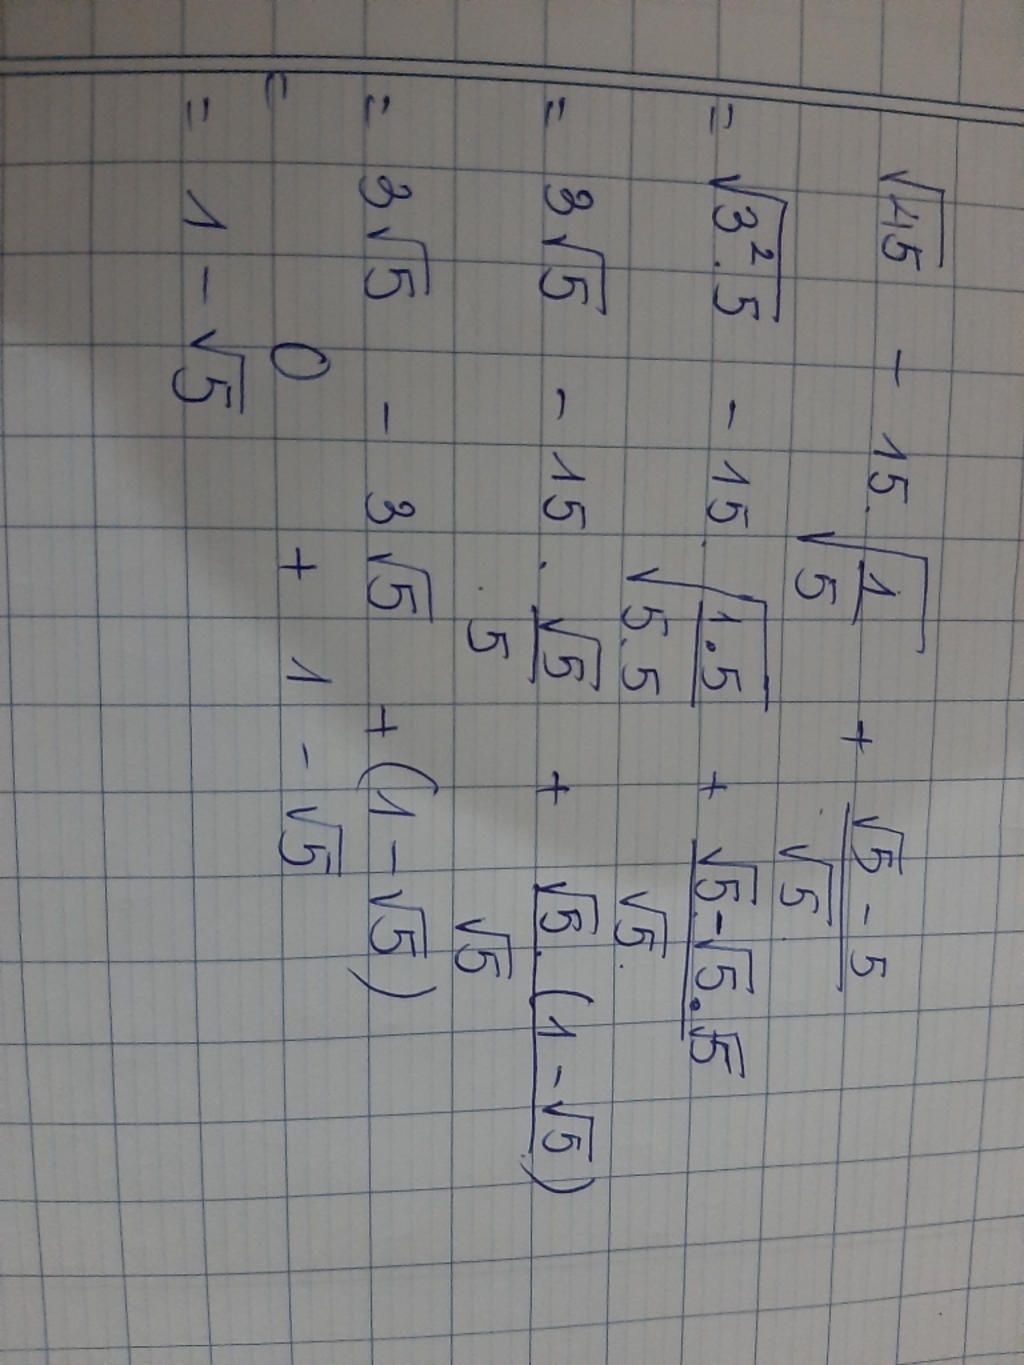 √45 - 15.√(1/5) + (√5 - 5)/√5
= √(3².5) - 15.√((1.5)/(5.5)) + (√5 - √5.√5)/√5
= 3√5 - 15.√5/5 + (√5.(1 - √5))/√5
= 3√5 - 3√5 + (1 - √5)
= 0 + 1 - √5
= 1 - √5